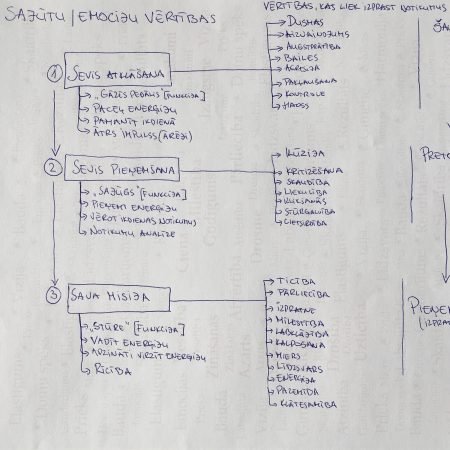 SAJŪTU / EMOCIJU VĒRTĪBAS
VĒRTĪBAS, KAS LIEK IZPRAST NOTIKUMUS
1 SEVIS ATKLĀŠANA
"GĀZES PEDĀLIS" [FUNKCIJA]
PACEĻ ENERĢIJU
PAMANĪT IKDIENĀ
ĀTRS IMPULSS (ĀRĒJI)
DUSMAS
AIZVAINOJUMS
AUGSTPRĀTĪBA
BAILES
AGRESIJA
PAKĻAUŠANA
KONTROLE
HAOSS
2 SEVIS PIEŅEMŠANA
"SAJŪGS" [FUNKCIJA]
PIEŅEMT ENERĢIJU
VĒROT IKDIENAS NOTIKUMUS
NOTIKUMU ANALĪZE
ILŪZIJA
KRITIZĒŠANA
SKAUDĪBA
LIEKULĪBA
STŪRGALVĪBA
CIETSIRDĪBA
3 SAVA MISIJA
"STŪRE" [FUNKCIJA]
VADĪT ENERĢIJU
APZINĀTI VIRZĪT ENERĢIJU
RĪCĪBA
TICĪBA
PĀRLIECĪBA
IZPRATNE
MĪLESTĪBA
LABKLĀJĪBA
KALPOŠANA
MIERS
LĪDZSVARS
ENERĢIJA
PAZEMĪBA
KLĀTESAMĪBA